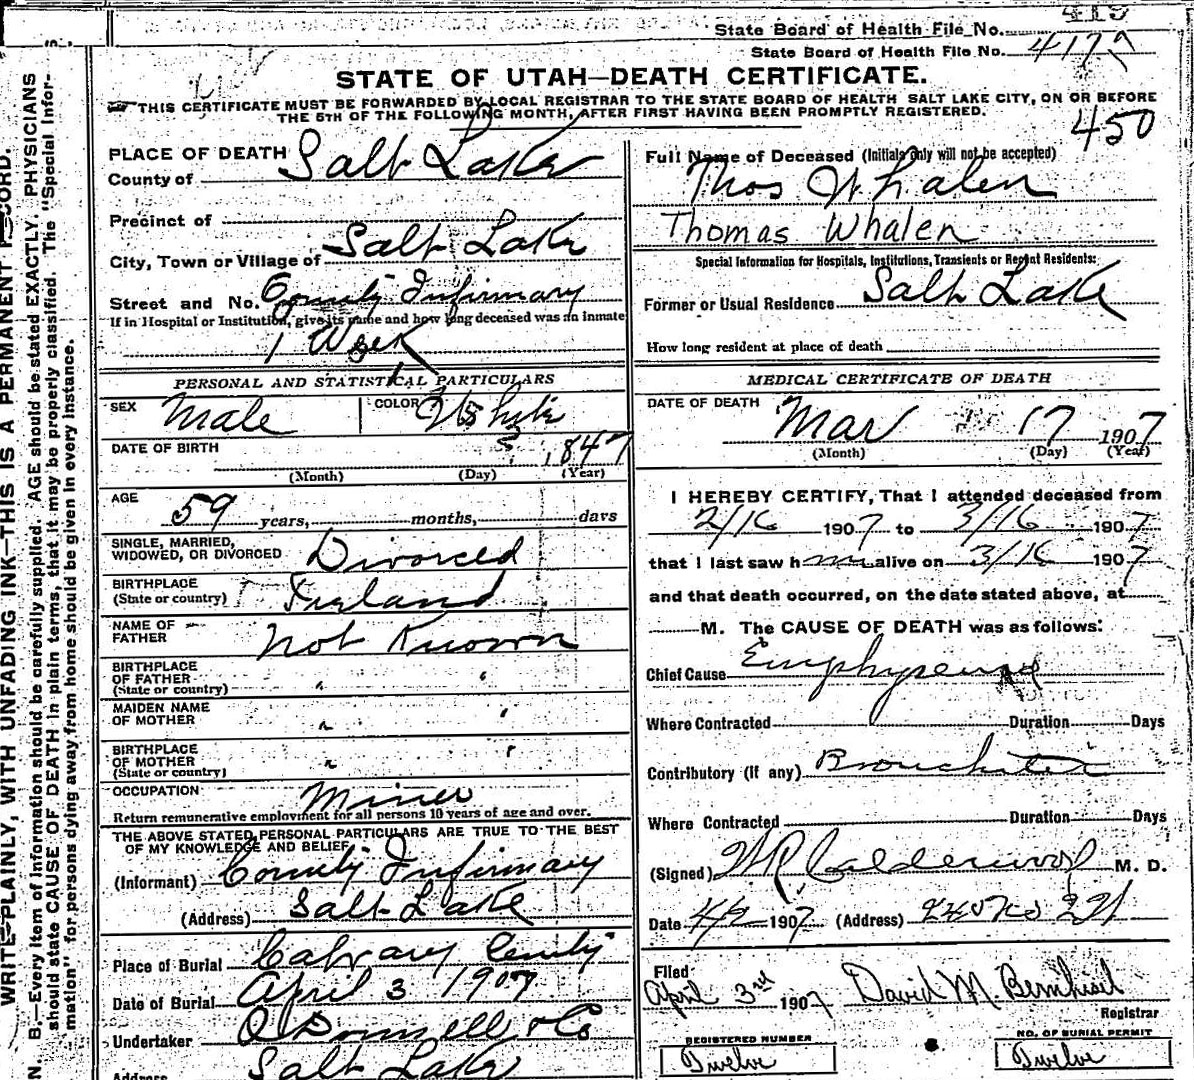 State Board of Health File No. 415
State Board of Health File No. 417
STATE OF UTAH—DEATH CERTIFICATE.
THIS CERTIFICATE MUST BE FORWARDED BY LOCAL REGISTRAR TO THE STATE BOARD OF HEALTH SALT LAKE CITY, ON OR BEFORE
THE 5TH OF THE FOLLOWING MONTH, AFTER FIRST HAVING BEEN PROMPTLY REGISTERED.
450
PLACE OF DEATH
County of Salt Lake
Precinct of
City, Town or Village of Salt Lake
Street and No. County Infirmary
If in Hospital or Institution, give its name and how long deceased was an inmate
1 Week
PERSONAL AND STATISTICAL PARTICULARS
SEX Male COLOR White
DATE OF BIRTH 1847
(Month) (Day) (Year)
AGE
59 years, months, days
SINGLE, MARRIED,
WIDOWED, OR DIVORCED Divorced
BIRTHPLACE
(State or country) Ireland
NAME OF
FATHER Not Known
BIRTHPLACE
OF FATHER " "
(State or country)
MAIDEN NAME
OF MOTHER " "
BIRTHPLACE
OF MOTHER " "
(State or country)
OCCUPATION Miner
Return remunerative employment for all persons 10 years of age and over.
THE ABOVE STATED PERSONAL PARTICULARS ARE TRUE TO THE BEST
OF MY KNOWLEDGE AND BELIEF
(Informant) County Infirmary
(Address) Salt Lake
Place of Burial Calvary Cemty
Date of Burial April 3 1907
Undertaker O Donnell & Co
Address Salt Lake
Full Name of Deceased (Initials only will not be accepted)
Thos Whalen
Thomas Whalen
Special Information for Hospitals, Institutions, Transients or Recent Residents:
Former or Usual Residence Salt Lake
How long resident at place of death
MEDICAL CERTIFICATE OF DEATH
DATE OF DEATH
Mar 17 1907
(Month) (Day) (Year)
I HEREBY CERTIFY, That I attended deceased from
2/16 1907 to 3/16 1907
that I last saw him alive on 3/16 1907
and that death occurred, on the date stated above, at
M. The CAUSE OF DEATH was as follows:
Chief Cause Emphysema
Where Contracted Duration Days
Contributory (if any) Bronchitis
Where Contracted Duration Days
(Signed) W R Calderwood M. D.
Date 4/2 1907 (Address)
Filed
April 3rd 1907 David M. Bernhisel
Registrar
REGISTERED NUMBER
Twelve
NO. OF BURIAL PERMIT
Twelve
WRITE PLAINLY, WITH UNFADING INK—THIS IS A PERMANENT RECORD.
N. B.—Every item of information should be carefully supplied. AGE should be stated EXACTLY. PHYSICIANS
should state CAUSE OF DEATH in plain terms, that it may be properly classified. The "Special Infor-
mation" for persons dying away from home should be given in every instance.